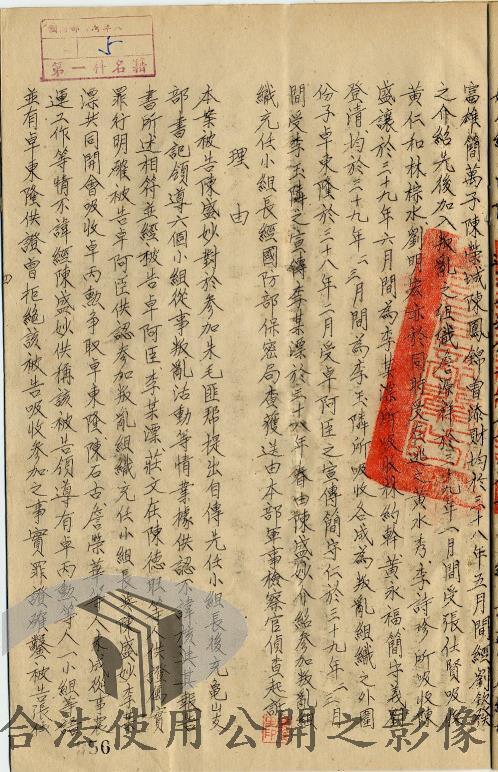 富雄簡萬子陳榮城陳鳳錦曹添財均於三十八年五月間經劉欽發
之介紹先後加入叛亂之組織詹源祥於三十九年一月間受張仕賢吸收
黃仁和林棕水劉明宏亦於同時受在逃之黃水秀李詩珍所吸收陳
盛讓於三十九年六月間為李某漂所吸收林約幹黃永福簡守義劉
登清均於三十九年二三月間為李玉隣所吸收各成為叛亂組織之外圍
份子卓東隆於三十八年二月受卓阿臣之宣傳簡守仁於三十九年二三月
間受李玉隣之宣傳李某漂於三十八年春由陳盛妙介紹參加叛亂組
織充任小組長經國防部保密局查獲送由本部軍事檢察官偵查起訴
理由
本案被告陳盛妙對於參加朱毛匪幫提出自傳先任小組長後充龜山支
部書記領導六個小組從事叛亂活動等情業據供認不諱核與其報告
書所述相符並經被告卓阿臣李某漂莊文在陳德
罪行明確被告卓阿臣供認參加叛亂組織充任小組長與陳盛妙李某
漂共同開會吸收卓丙動爭取卓東隆陳石古詹榮華
運工作等情不諱經陳盛妙供稱該被告領導有卓丙動等人一小組
並有卓東隆供證曾拒絕該被告吸收參加之事實罪證確鑿被告張仕
第一科名籍
5
56
合法使用公開之影像